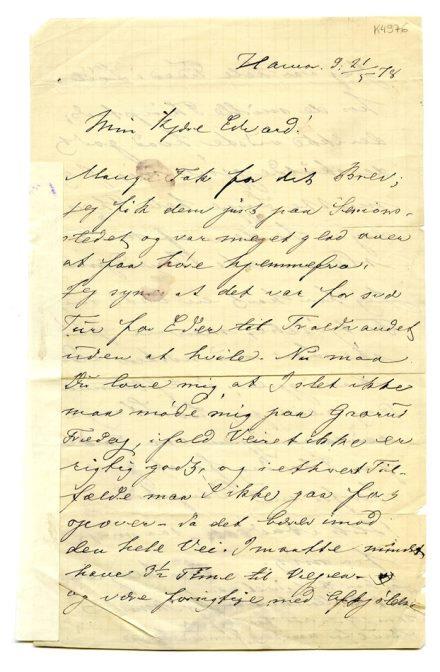 K4976
Hamar d. 21/5 78
Min Kjære Edvard!
Mange Tak for dit Brev;
jeg fik dem just paa Sessions-
stedet og var meget glad over
at faa høre hjemmefra.
Jeg synes at det var for svær
Tur for Eder til Troldvandet
uden at hvile. Nu maa
Du love mig at I slet ikke
maa møde mig paa Grorud
Fredag, ifald Veiret ikke er
rigtig godt, og i ethvert Til-
fælde maa I ikke gaa for
opover - da det bærer imod
den hele Vei. I maatte mindst
have 3½ Time til Veien -
og være forsigtige med Afkjøling